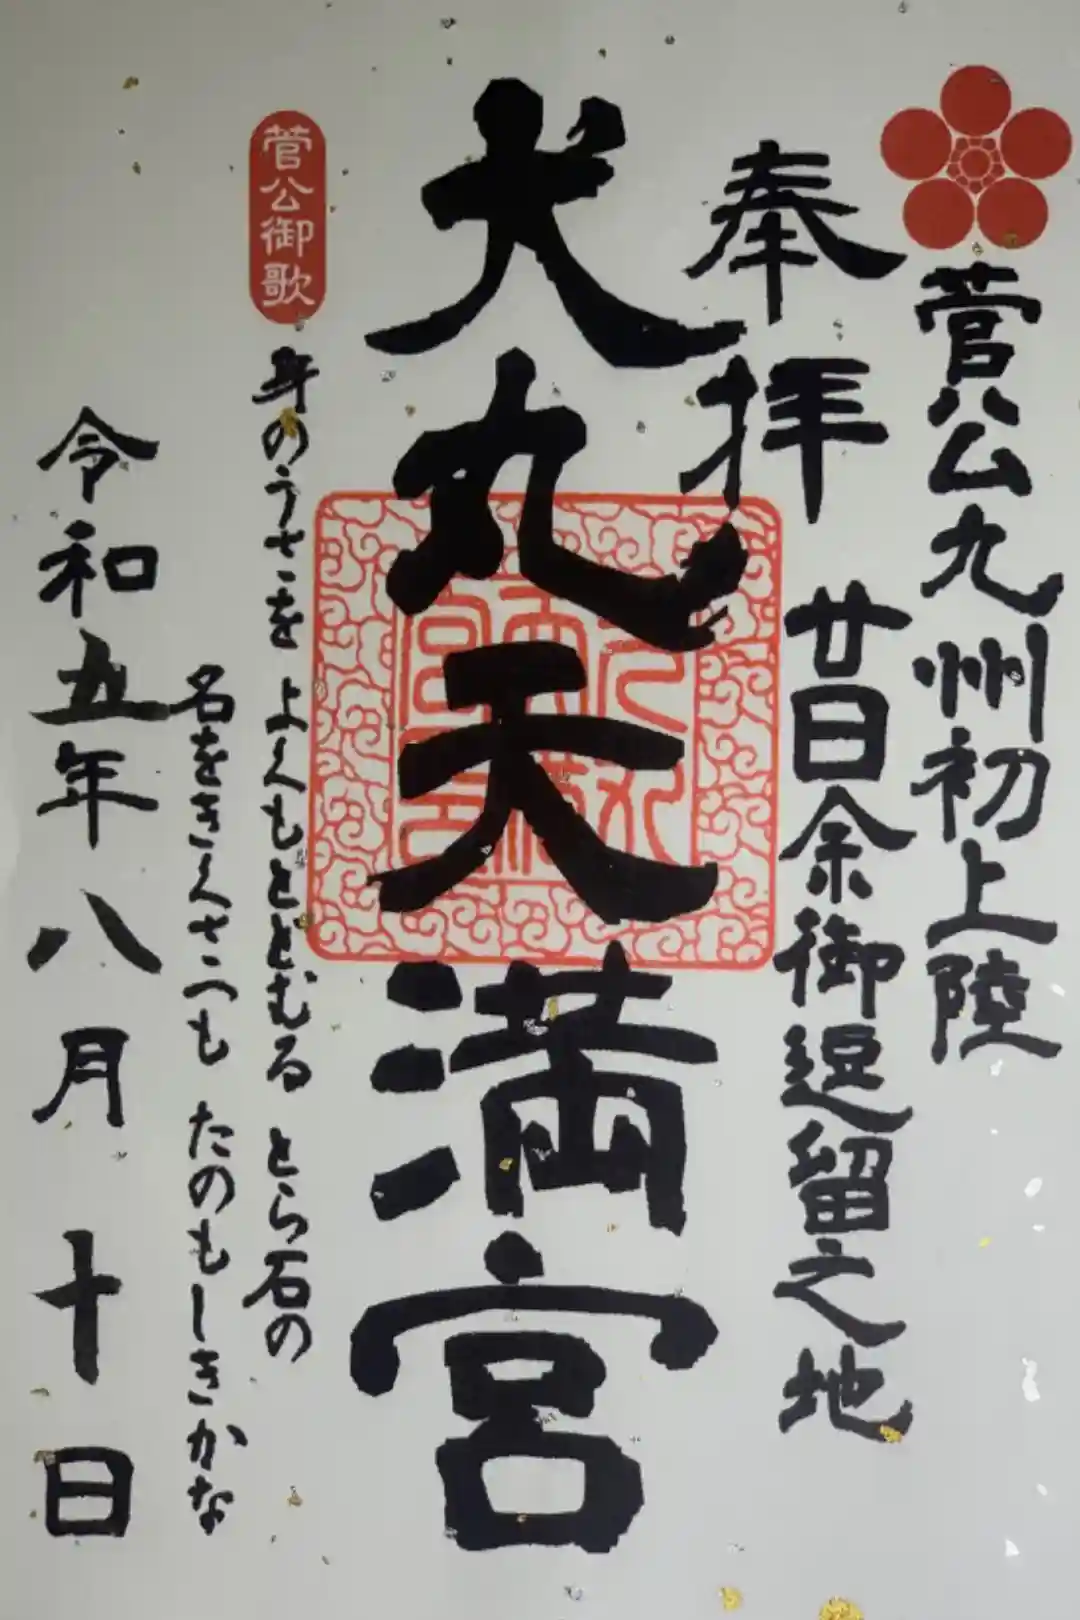 菅公九州初上陸
奉拝 廿日余御逗留之地
犬丸天満宮
菅公御歌
身のうさを よくもとどむる とら石の
名をきくさへも たのもしきかな
令和五年八月十日